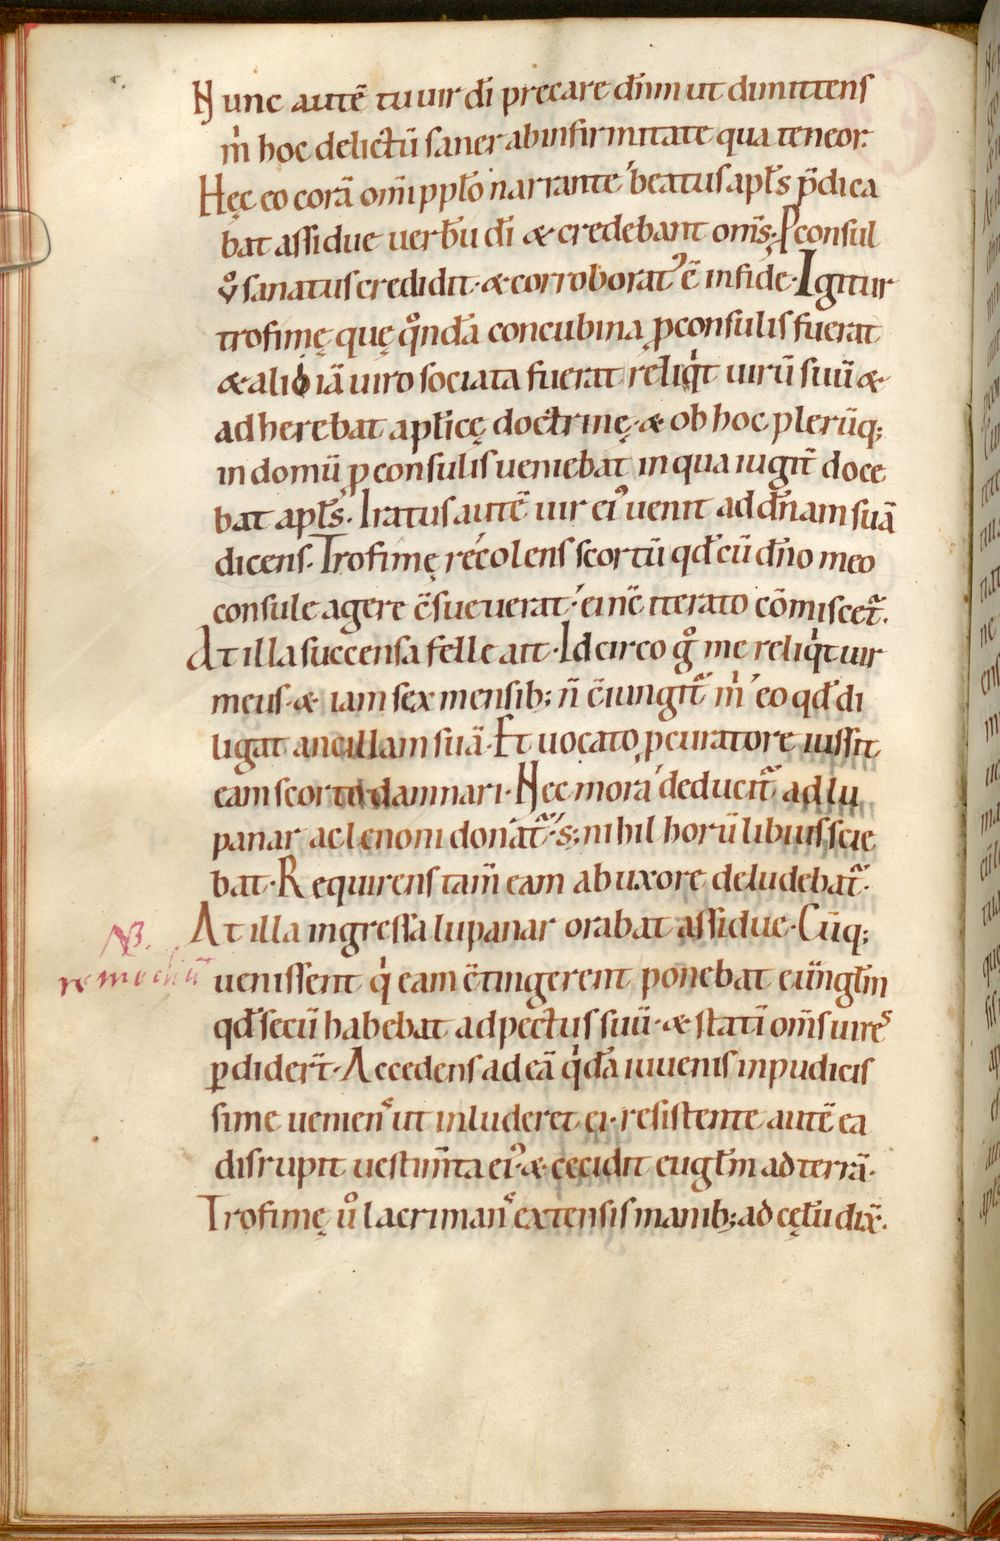 Nunc autē tu uir dī precare dn̄m ut dimittens
m̍ hoc delictū saner ab infirmitate qua teneor.
Hęc eo corā om̄i ppłō narrante beatus apłs p̄dica
bat assidue uerbū dī & credebant om̄s; Pconsul
v̊ sanatus credidit · & corroborat᾽ ē in fide · Igitur
trofimę quę qͦndā concubina ꝓconsulis fuerat
& alio iā uiro sociata fuerat reliq̍t uirū suū &
adherebat apłicę doctrinę · & ob hoc plerūq;
in domū ꝓconsulis ueniebat in qua iugit̄ doce
bat apłs. Iratus autē uir ei᾽ uenit ad dn̄am suā
dicens. Trofimę recolens scortū qđ cū dn̄o meo
consule agere ēsueuerat · ei nc̄ iterato cōmiscet̃.
At illa succensa felle ait · Idcirco gͦ me reliq̍t uir
meus · & iam sex mensib; n̄ c̄iungit̃ m̍ eo qđ di
ligat ancillam suā · Et uocato ꝓcuratore iussit
eam scorto damnari · Nec mora deducit̃ ad lu
panar ac lenoni donat̃ · s; nihil horū libius scie
bat · Requirens tam̄ eam ab uxore deludebat̃ ·
At illa ingressa lupanar orabat assidue · Cūq;
NB.
remochiū
uenissent q̍ eam c̄tingerent ponebat euuḡłm
qđ secū habebat ad pectus suū · & statī om̄s uires
ꝑdidert̄ · Accedens ad eā q̍dā iuuenis inpudicis
sime uenienˢ ut inluderet ei · resistente autē ea
disrupit uestim̄ta ei᾽ · & cecidit eugłm ad terrā ·
Trofimę ůo lacrimanˢ extensis manib; ad cęłū dix̄.